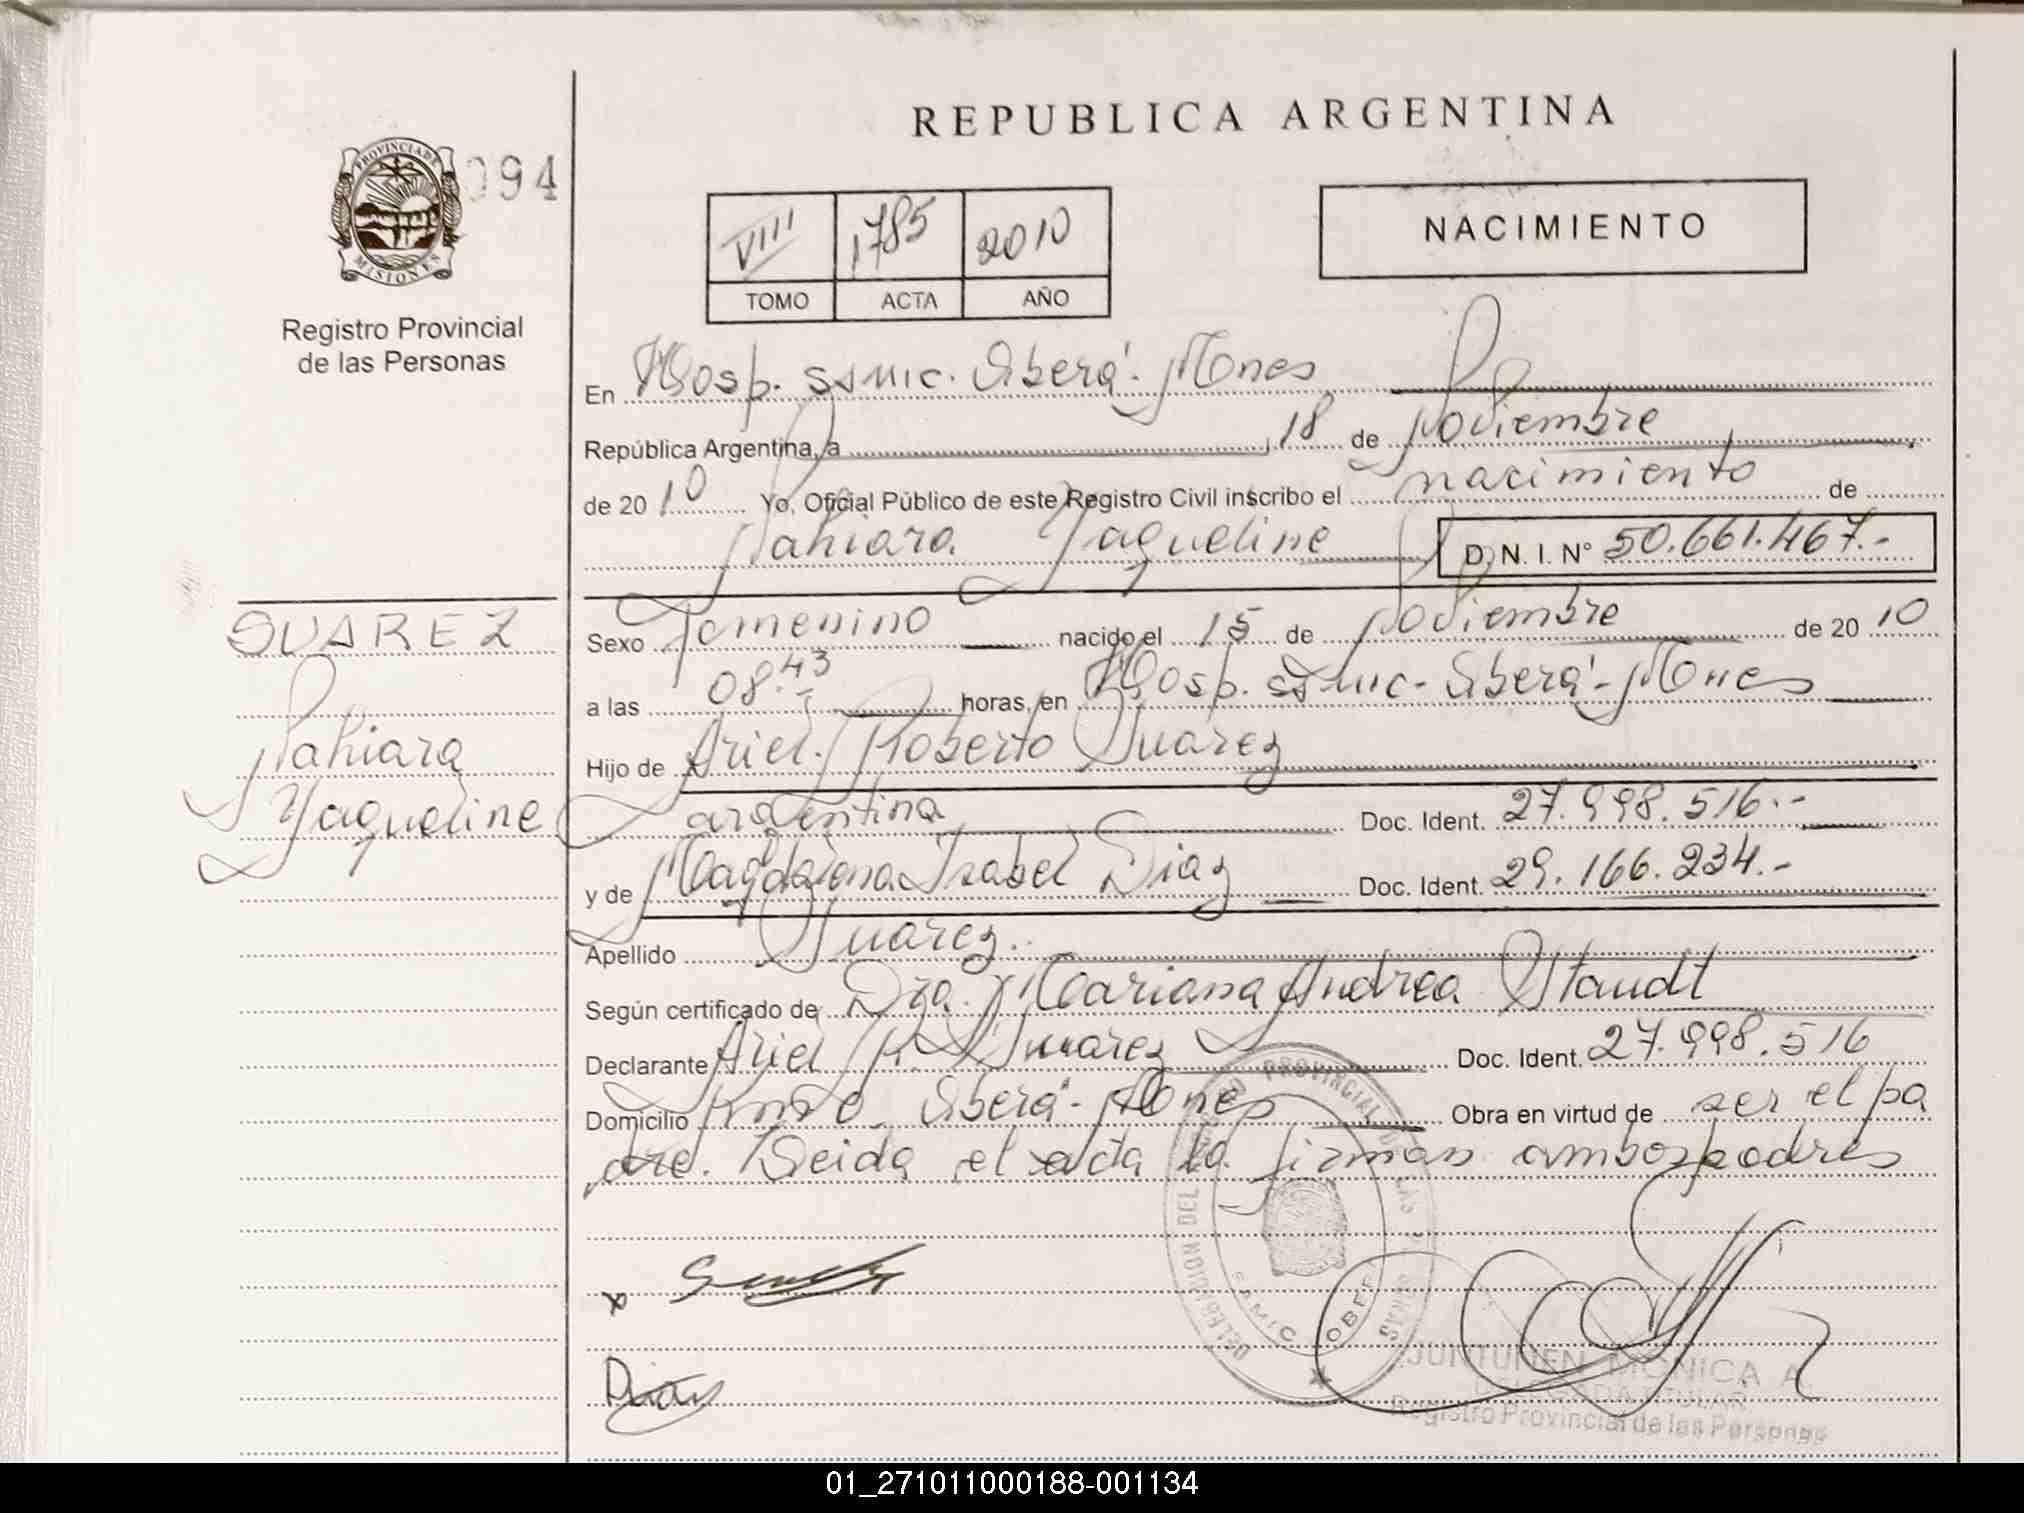 REPUBLICA ARGENTINA
PROVINCIA DE
MISIONES
094
Registro Provincial
de las Personas
VIII 1785 2010
TOMO ACTA AÑO
NACIMIENTO
En Hosp. SAMIC. Oberá. Mnes
República Argentina, a 18 de Noviembre
de 2010 Yo, Oficial Público de este Registro Civil inscribo el nacimiento de
Nahiara Yaqueline D. N. I. Nº 50.661.467.-
SUAREZ
Nahiara
Yaqueline
Sexo Femenino nacido el 15 de Noviembre de 2010
a las 08.43 horas, en Hosp. SAMIC- Oberá- Mnes
Hijo de Ariel Roberto Suarez
argentina Doc. Ident. 27.998.516.-
y de Magdalena Isabel Diaz Doc. Ident. 29.166.234.-
Apellido Suarez.
Según certificado de Dra. Mariana Andrea Staudt
Declarante Ariel R. Suarez Doc. Ident. 27.998.516
Domicilio Oberá- Mnes Obra en virtud de ser el pa
dre. Leida el acta la firman ambos padres
x
Diaz
DELEGACION DEL REGISTRO PROVINCIAL DE LAS PERSONAS
SAMIC. OBERA
MONICA A
DELEGADA TITULAR
Registro Provincial de las Personas
01_271011000188-001134